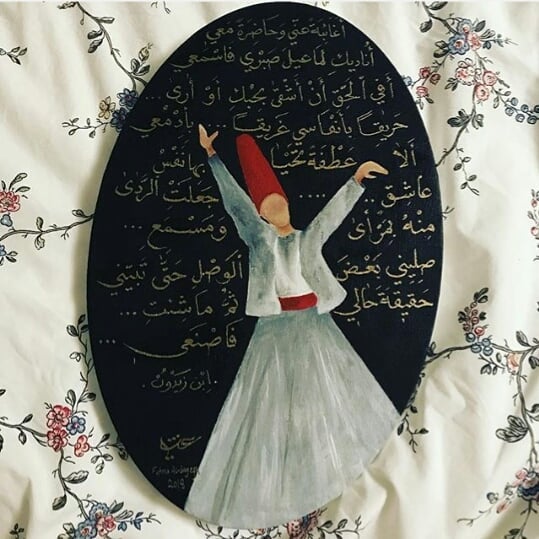 أَغَائِبَةً عَنِّي وَحَاضِرَةً مَعِي
أُنَادِيكِ لَمَّا عِيلَ صَبْرِي فَاسْمَعِي
أَفِي الْحَقِّ أَنْ أَشْقَى بِحُبِّكِ أَوْ أُرَى ...
حَرِيقًا بِأَنْفَاسِي غَرِيقًا ... بِأَدْمُعِي
أَلَا عَطْفَةٌ تَحْيَا بِهَا نَفْسُ
عَاشِقٍ .. .... جَعَلْتِ الرَّدَى
مِنْهُ بِمَرْأَى وَمَسْمَعِ ...
صِلِينِي بَعْضَ الْوَصْلِ حَتَّى تَبَيَّنِي
حَقِيقَةَ حَالِي ثُمَّ مَا شِئْتِ ...
فَاصْنَعِي ...
. ابْن زَيْدُون .
Fatma
2019